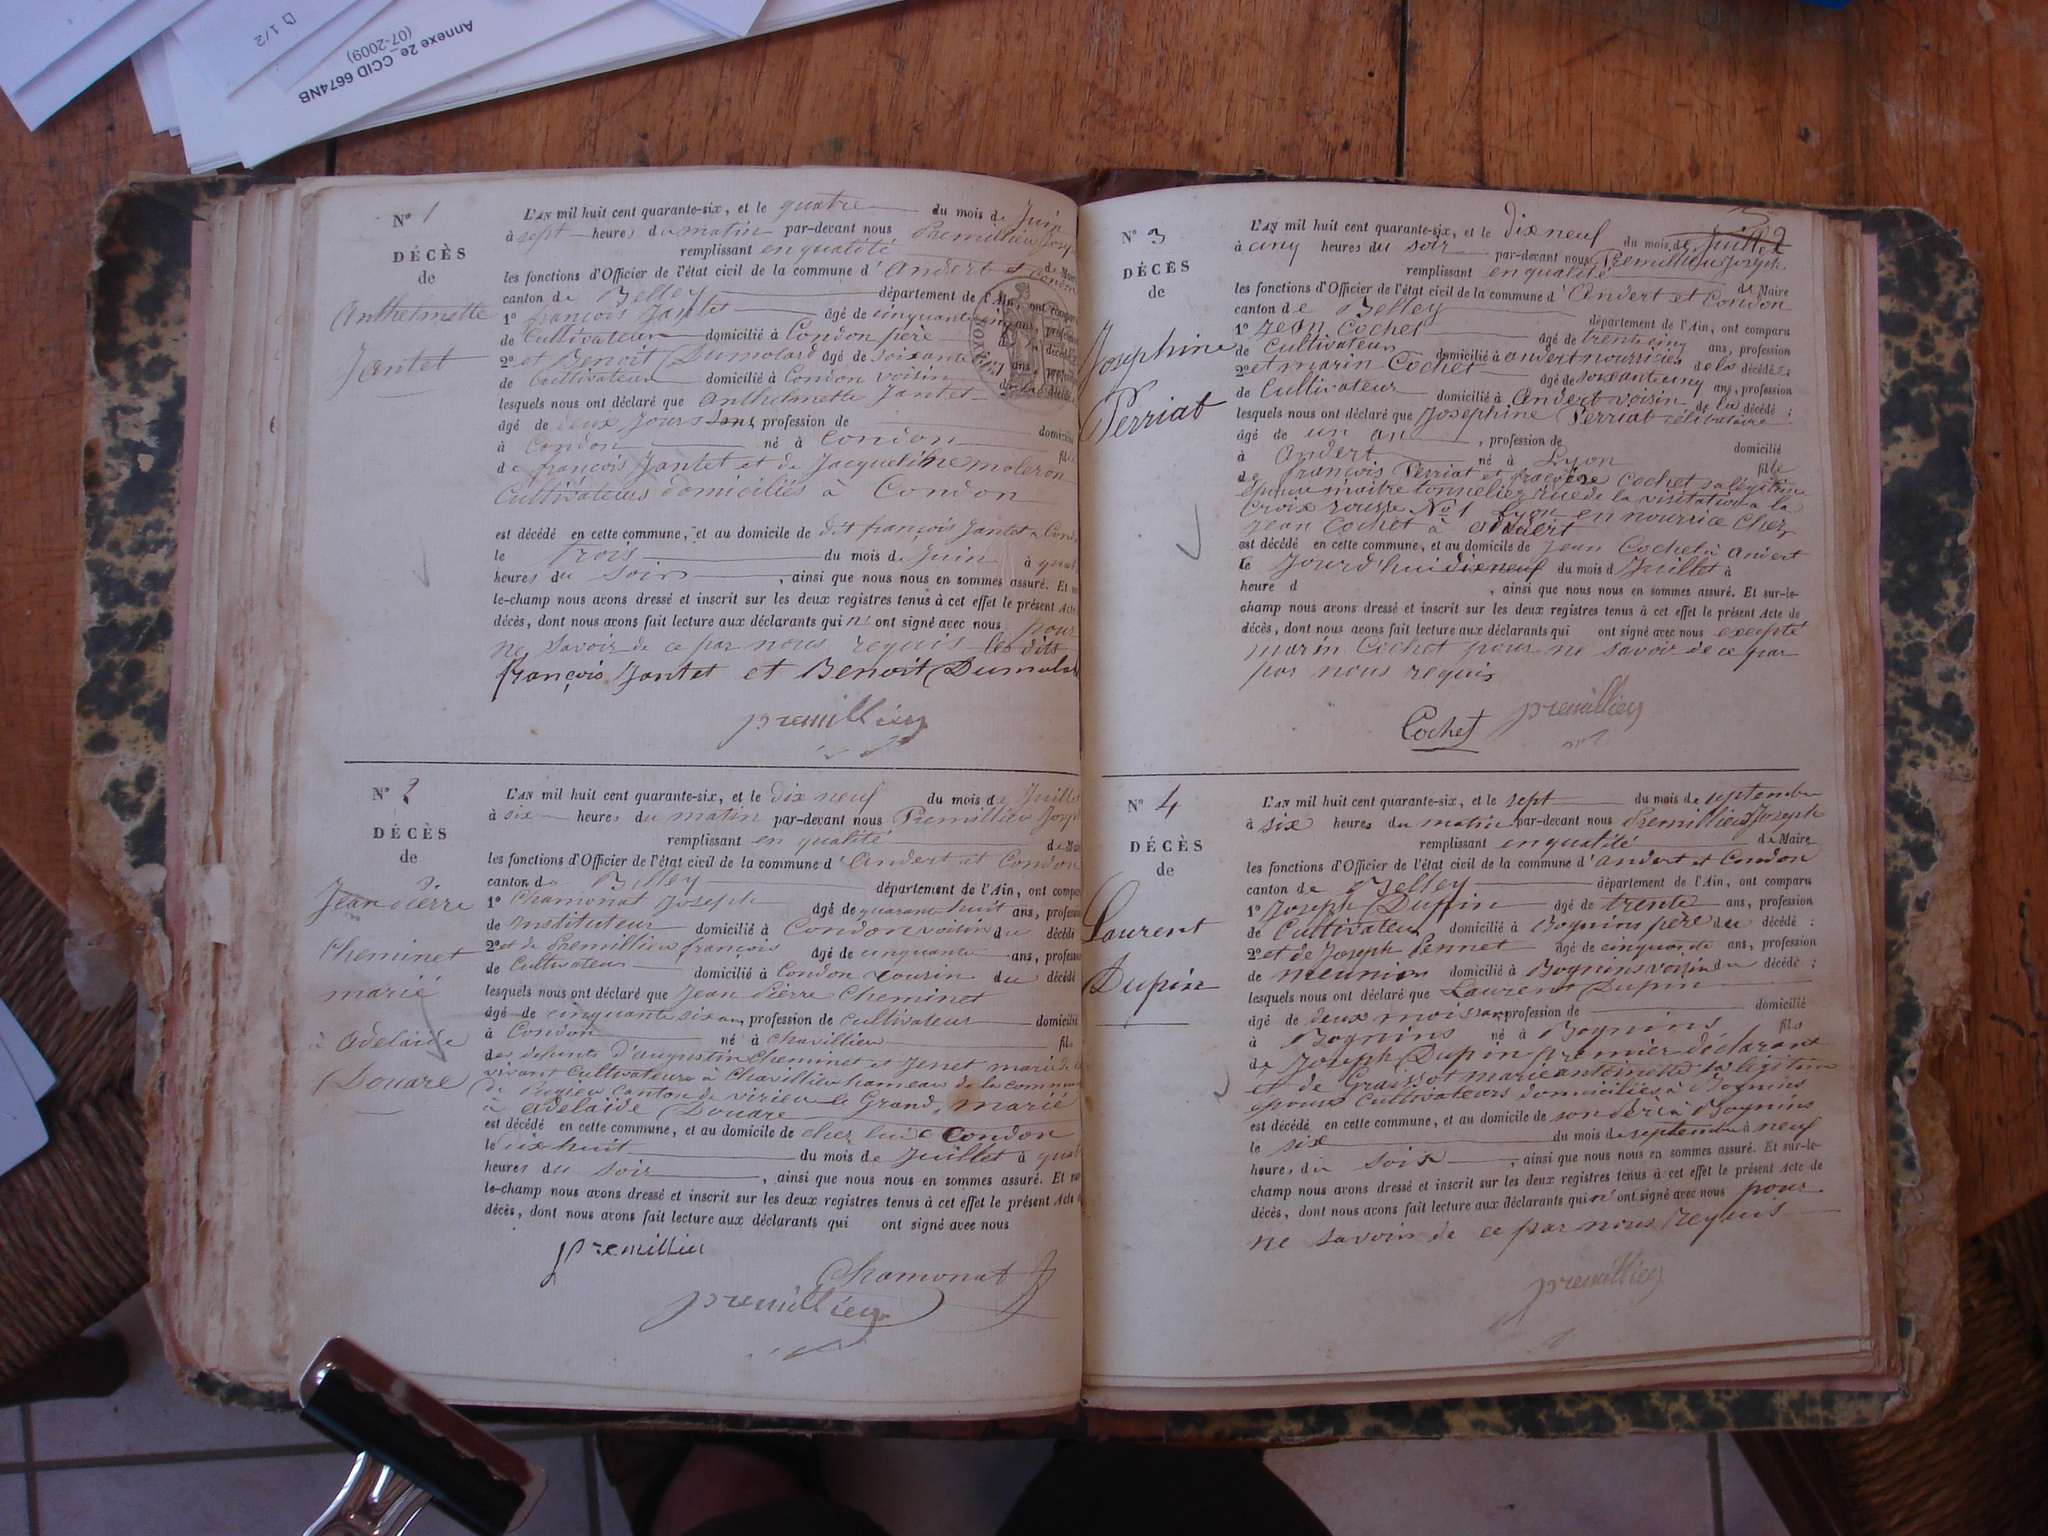 Annexe 2e_CCID 6674NB
(07-2009)
1/2
N° 1
DÉCÈS
de
Anthelmette
Jantet
L'AN mil huit cent quarante-six, et le quatre du mois de Juin
à sept heures du matin par-devant nous Premillieu Josep
remplissant en qualité de Maire
les fonctions d'Officier de l'état civil de la commune d'Andert et Condon
canton de Belley département de l'Ain, ont comparu
1° françois Jantet âgé de cinquante cinq ans, profession
de Cultivateur domicilié à Condon père de la décédée
2° et Benoit Dumolard âgé de soixante ans, profession
de Cultivateur domicilié à Condon voisin de la décédée
lesquels nous ont déclaré que anthelmette Jantet
âgé de deux jours sans profession de domicilié
à Condon né à Condon fille
de françois Jantet et de Jacqueline moleron
Cultivateurs domiciliés à Condon
est décédé en cette commune, et au domicile de dit françois Jantet à Cond
le trois du mois de Juin à quat
heures du soir, ainsi que nous nous en sommes assuré. Et sur
le-champ nous avons dressé et inscrit sur les deux registres tenus à cet effet le présent Acte
décès, dont nous avons fait lecture aux déclarants qui n'ont signé avec nous pour
ne savoir de ce par nous requis les dits
françois Jantet et Benoit Dumolard
premillieu
N° 2
DÉCÈS
de
Jean Pierre
Cheminet
marié
à Adelaide
Douare
L'AN mil huit cent quarante-six, et le dix neuf du mois de Juillet
à six heures du matin par-devant nous Premillieu Josep
remplissant en qualité de Maire
les fonctions d'Officier de l'état civil de la commune d'andert et Condon
canton de Belley département de l'Ain, ont comparu
1° Chamonat Joseph âgé de quarante huit ans, profession
de Instituteur domicilié à Condon voisin du décédé
2° et de Premillieu françois âgé de cinquante ans, profession
de Cultivateur domicilié à Condon cousin du décédé
lesquels nous ont déclaré que Jean Pierre Cheminet
âgé de cinquante six ans, profession de cultivateur domicilié
à Condon né à Chavillieu fils
des défunts d'augustin Cheminet et Jenet marie
vivant Cultivateurs à Chavillieu hameau de la commune
de Pugieu Canton de virieu le Grand, marié
à adelaide Douare
est décédé en cette commune, et au domicile de chez lui à Condon
le dix huit du mois de Juillet à quat
heures du soir, ainsi que nous nous en sommes assuré. Et sur
le-champ nous avons dressé et inscrit sur les deux registres tenus à cet effet le présent Acte
décès, dont nous avons fait lecture aux déclarants qui ont signé avec nous
Premillieu
Chamonat
premillieu
2
N° 3
DÉCÈS
de
Josephine
Perriat
L'AN mil huit cent quarante-six, et le dix neuf du mois de Juillet
à cinq heures du soir par-devant nous Premillieu Joseph
remplissant en qualité de Maire
les fonctions d'Officier de l'état civil de la commune d'andert et Condon
canton de Belley département de l'Ain, ont comparu
1° Jean Cochet âgé de trente cinq ans, profession
de Cultivateur domicilié à andert nourricier de la décédée
2° et marin Cochet âgé de soixante cinq ans, profession
de Cultivateur domicilié à Andert voisin de la décédé ;
lesquels nous ont déclaré que Josephine Perriat célibataire
âgé de un an, profession de domicilié
à Andert né à Lyon fille
de françois Perriat et françoise Cochet sa légitime
épouse maitre tonnelier rue de la visitation à la
Croix rousse No 1 Lyon en nourrice chez
Jean Cochet à andert
est décédé en cette commune, et au domicile de Jean Cochet à andert
le Jourd'hui dix neuf du mois d Juillet à
heure d, ainsi que nous nous en sommes assuré. Et sur-le-
champ nous avons dressé et inscrit sur les deux registres tenus à cet effet le présent Acte de
décès, dont nous avons fait lecture aux déclarants qui ont signé avec nous excepté
marin Cochet pour ne savoir de ce par
par nous requis
Cochet
premillieu
N° 4
DÉCÈS
de
Laurent
Dupin
L'AN mil huit cent quarante-six, et le sept du mois de septembre
à six heures du matin par-devant nous Premillieu Joseph
remplissant en qualité de Maire
les fonctions d'Officier de l'état civil de la commune d'andert et Condon
canton de Belley département de l'Ain, ont comparu
1° Joseph Dupin âgé de trente ans, profession
de Cultivateur domicilié à Bognins père du décédé :
2° et de Joseph Pennet âgé de cinquante ans, profession
de meunier domicilié à Bognins voisin du décédé ;
lesquels nous ont déclaré que Laurent Dupin
âgé de deux mois sans profession de domicilié
à Bognins né à Bognins fils
de Joseph Dupin premier déclarant
et de Graissot marie antoinette sa légitime
épouse Cultivateurs domiciliés à Bognins
est décédé en cette commune, et au domicile de son père à Bognins
le six du mois de septembre à neuf
heures du soir, ainsi que nous nous en sommes assuré. Et sur-le-
champ nous avons dressé et inscrit sur les deux registres tenus à cet effet le présent Acte de
décès, dont nous avons fait lecture aux déclarants qui n'ont signé avec nous pour
ne savoir de ce par nous requis
premillieu